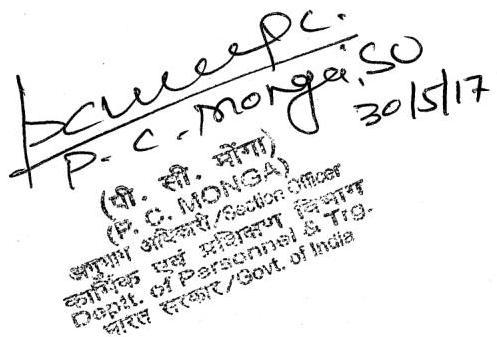 P. C. Monga, SO
30/5/17
(पी. सी. मोंगा)
(P. C. MONGA)
अनुभाग अधिकारी/Section Officer
कार्मिक एवं प्रशिक्षण विभाग
Deptt. of Personnel & Trg.
भारत सरकार/Govt. of India